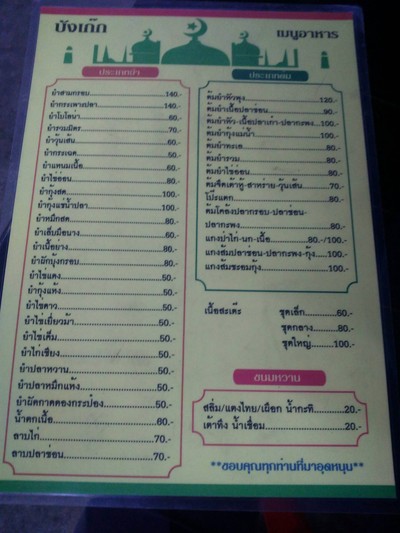 บังเก๊ก
เมนูอาหาร
ประเภทยำ
ยำสามกรอบ 140.-
ยำกระเพาะปลา 140.-
ยำโบโลน่า 60.-
ยำรวมมิตร 70.-
ยำวุ้นเส้น 60.-
ยำกระเฉด 50.-
ยำแหนมเนื้อ 60.-
ยำไข่อ่อน 80.-
ยำกุ้งสด 100.-
ยำกุ้งแช่น้ำปลา 100.-
ยำหมึกสด 80.-
ยำเล็บมือนาง 60.-
ยำเนื้อย่าง 80.-
ยำผักบุ้งกรอบ 80.-
ยำไข่แดง 50.-
ยำกุ้งแห้ง 50.-
ยำไข่ดาว 50.-
ยำไข่เยี่ยวม้า 50.-
ยำไข่เค็ม 50.-
ยำไก่เชียง 50.-
ยำปลาหวาน 50.-
ยำปลาหมึกแห้ง 50.-
ยำผักกาดดองกระป๋อง 50.-
น้ำตกเนื้อ 60.-
ลาบไก่ 70.-
ลาบปลาช่อน 70.-
ประเภทต้ม
ต้มยำหัวพุง 120.-
ต้มยำเนื้อปลาช่อน 90.-
ต้มยำหัว-เนื้อปลาเก๋า-ปลากะพง 100.-
ต้มยำกุ้งแม่น้ำ 100.-
ต้มยำทะเล 80.-
ต้มยำรวม 80.-
ต้มยำไข่อ่อน 80.-
ต้มจืดเต้าหู้-สาหร่าย-วุ้นเส้น 70.-
โป๊ะแตก 80.-
ต้มโคล้งปลากรอบ-ปลาช่อน-
ปลากะพง 80.-
แกงป่าไก่-นก-เนื้อ 80.-/100.-
แกงส้มปลาช่อน-ปลากะพง-กุ้ง 100.-
แกงส้มชะอมกุ้ง 100.-
เนื้อสะเต๊ะ ชุดเล็ก 60.-
ชุดกลาง 80.-
ชุดใหญ่ 100.-
ขนมหวาน
สลิ่ม/แตงไทย/เผือก น้ำกะทิ 20.-
เต้าทึง น้ำเชื่อม 20.-
**ขอบคุณทุกท่านที่มาอุดหนุน**